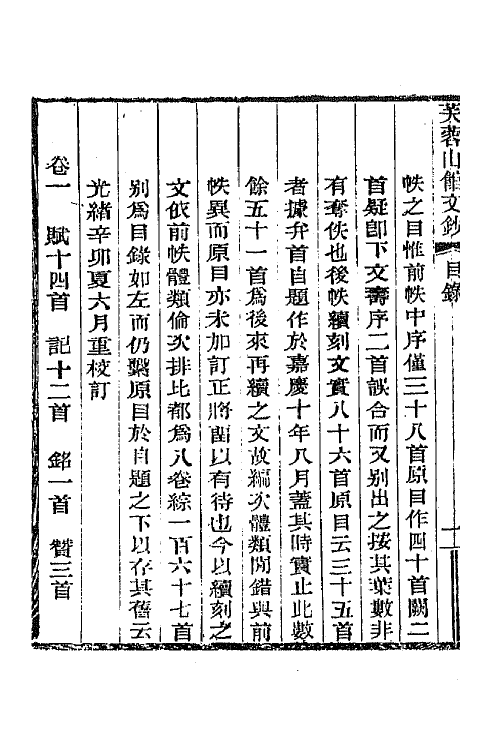 芙蓉山館文鈔 目錄
帙之目惟前帙中序僅三十八首原目作四十首闕二
首疑卽下文壽序二首誤合而又別出之按其葉數非
有奪佚也後帙續刻文實八十六首原目云三十五首
者據弁首自題作於嘉慶十年八月蓋其時實止此數
餘五十一首爲後來再續之文故編次體類閒錯與前
帙異而原目亦未加訂正將留以有待也今以續刻之
文依前帙體類倫次排比都爲八卷綜一百六十七首
別爲目錄如左而仍繫原目於自題之下以存其舊云
光緒辛卯夏六月重校訂
卷一 賦十四首 記十二首 銘一首 贊三首